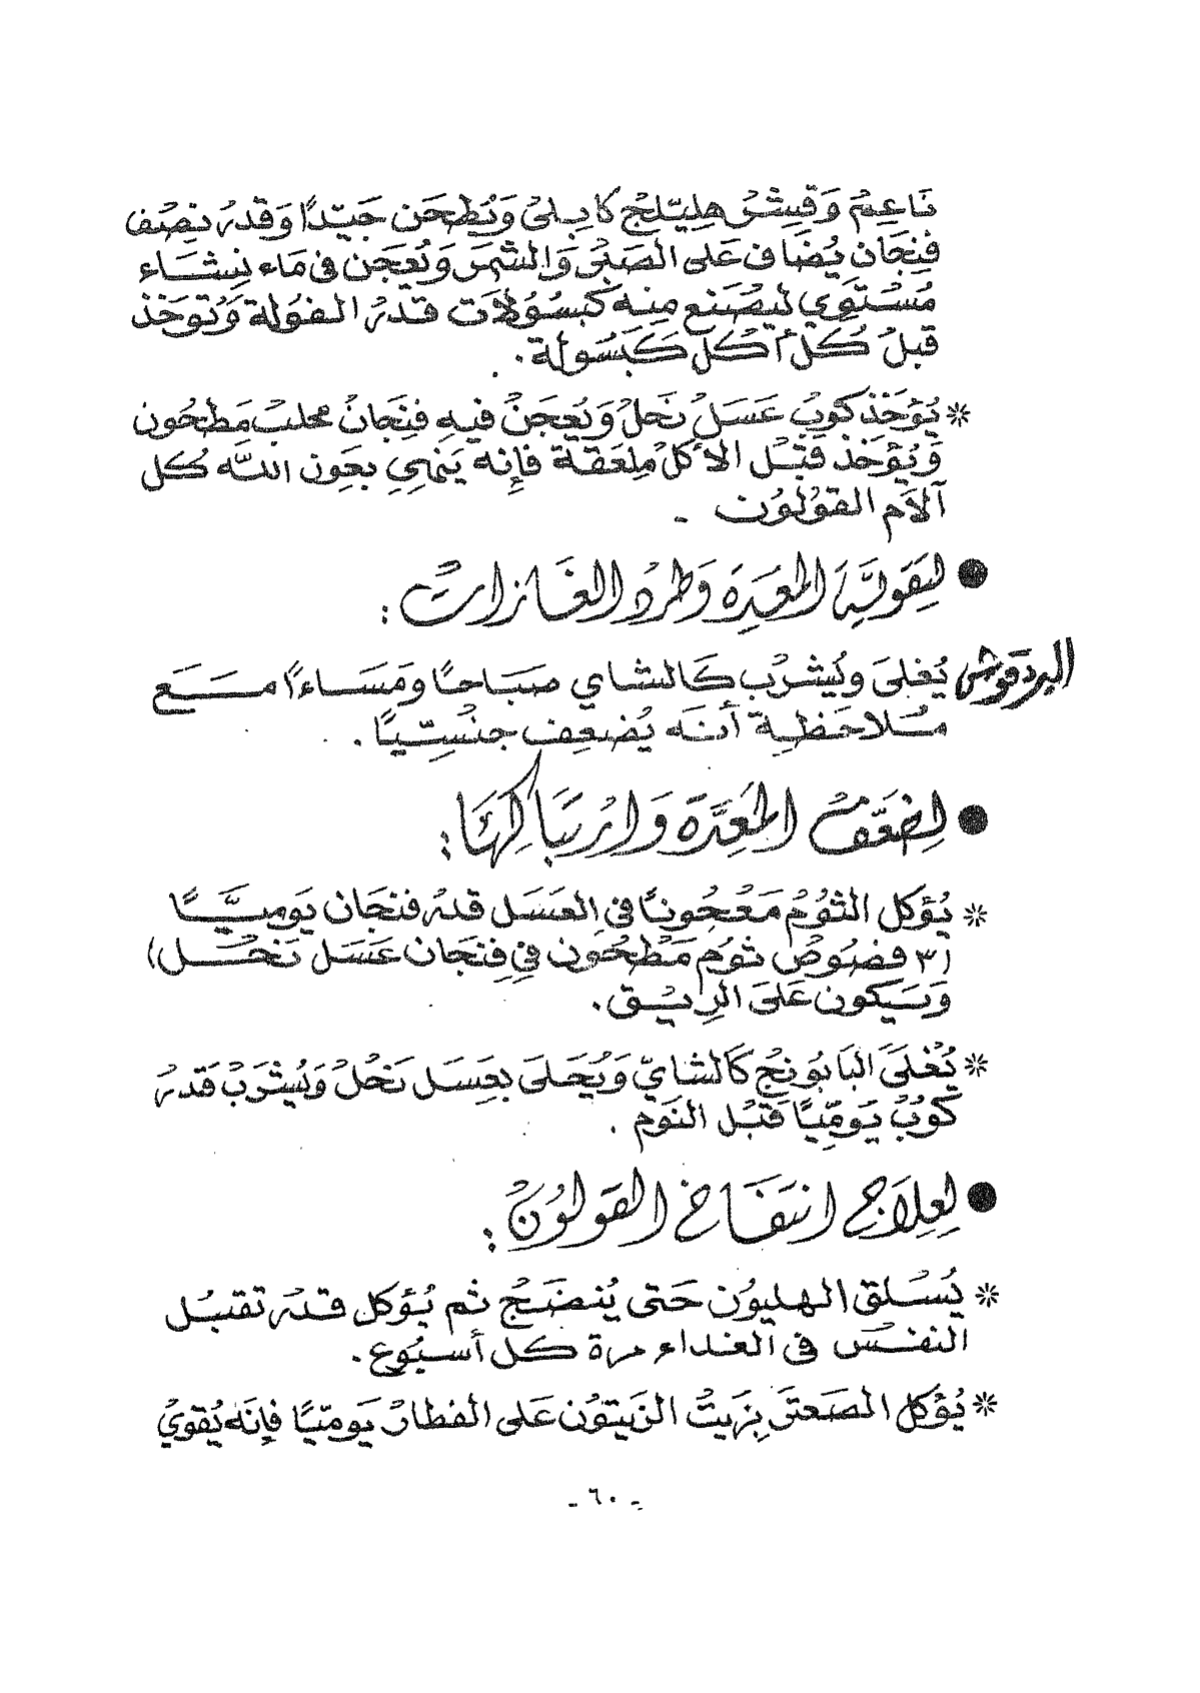 نَاعِمْ وَقِشْر هِليّلج كابِلىْ وَيُطحَن جَيّدًا وَقدْر نِصْف
فِنجَان يُضَاف عَلى الصَبْر وَالشمَر وَيُعجَن فى مَاء بنِشَاء
مُسْتوي ليصْنع مِنه كبسُولاَت قدْر الفوُلة وَتُوخَذ
قبلْ كُل أكْل كَبسُولة .
* يُؤخَذ كوبْ عَسَلْ نَحلْ وَيُعجَنْ فيهِ فنِجَانْ محلبْ مَطحُون
وَيُؤخَذ قَبْل الأكلْ مِلعَقة فإِنه يَنهِي بعَون اللَّه كُل
آلاَم القوْلوُن .
● لِتقويَة المعِدَة وَطرد الغَازات :
البردقوش يُغلىَ ويُشرْب كَالشاي صبَاحًا ومَسَاءًا مَع
مُلاحَظة أنَه يُضعِف جنْسِيًّا .
● لِضَعَف المعِدَة وَارْتبَاكِهَا :
* يُؤكل الثوُم مَعْجُونًا في العَسَل قدْر فنجَان يَوميًّا
(٣ فصُوصْ ثوُم مَطْحُون في فِنجَان عَسَل نَحْل)
وَيَكون عَلىَ الرِيْق .
* يُغْلَىَ البَابُونجْ كَالشايّ وَيُحَلىَ بعَسَل نَحْلْ وَيُشرَبْ قَدْر
كوُبْ يَومّيًا قَبْل النَوم .
● لِعِلاَج انتفَاخ القولوُنْ :
* يُسْلق الهليوُن حَتى يُنضَجْ ثم يُؤكل قدْر تقبُل
النفسْ فى الغداء مرة كل أسبُوع .
* يُؤكل الصَعتَر بِزَيتْ الزَيتوُن عَلى الفطارْ يَومّيًا فإِنَه يُقوي
- ٦٠ -